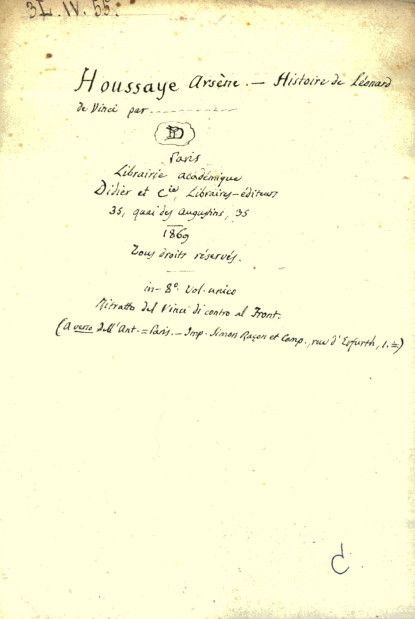 3L. IV. 55.
Houssaye Arsène. — Histoire de Léonard
de Vinci par
D
Paris
Librairie académique
Didier et Cie, Libraires-éditeurs
35, quai des Augustins, 35
1869
Tous droits réservés.
in-8°. Vol. unico
Ritratto del Vinci di contro al Front:
(A verso dell'Ant. = Paris. — Imp. Simon Raçon et Comp., rue d'Erfurth, 1. =)
C